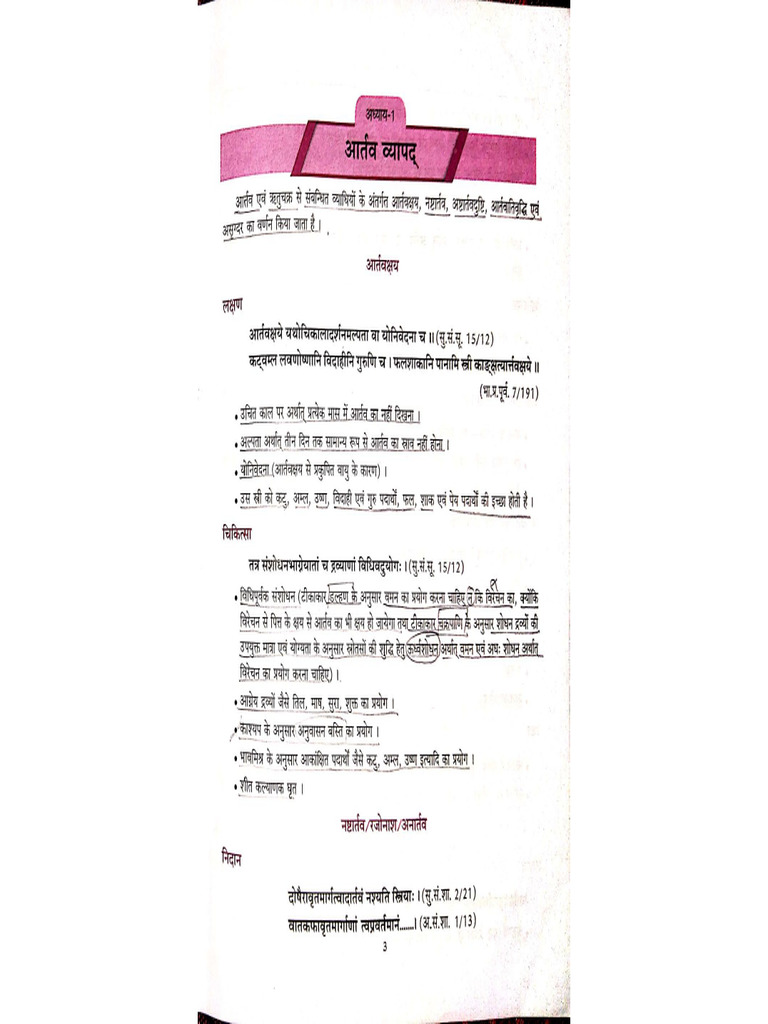 अध्याय-1
आर्तव व्यापद्
आर्तव एवं ऋतुचक्र से संबन्धित व्याधियों के अंतर्गत आर्तवक्षय, नष्टार्तव, अष्टार्तवदुष्टि, आर्तवातिवृद्धि एवं
असृग्दर का वर्णन किया जाता है ।
आर्तवक्षय
लक्षण
आर्तवक्षये यथोचिकालादर्शनमल्पता वा योनिवेदना च ॥ (सु.सं.सू. 15/12)
कट्वम्ल लवणोष्णानि विदाहीनि गुरुणि च । फलशाकानि पानामि स्त्री काङ्क्षत्यार्त्तवक्षये ॥
(भा.प्र.पूर्व. 7/191)
• उचित काल पर अर्थात् प्रत्येक मास में आर्तव का नहीं दिखना ।
• अल्पता अर्थात् तीन दिन तक सामान्य रूप से आर्तव का स्राव नहीं होना ।
• योनिवेदना (आर्तवक्षय से प्रकुपित वायु के कारण) ।
• उस स्त्री को कटु, अम्ल, उष्ण, विदाही एवं गुरु पदार्थों, फल, शाक एवं पेय पदार्थों की इच्छा होती है ।
चिकित्सा
तत्र संशोधनभाग्नेयातां च द्रव्याणां विधिवदुयोगः । (सु.सं.सू. 15/12)
• विधिपूर्वक संशोधन (टीकाकार डल्हण के अनुसार वमन का प्रयोग करना चाहिए न कि विरेचन का, क्योंकि
विरेचन से पित्त के क्षय से आर्तव का भी क्षय हो जायेगा तथा टीकाकार चक्रपाणि के अनुसार शोधन द्रव्यों की
उपयुक्त मात्रा एवं योग्यता के अनुसार स्रोतसों की शुद्धि हेतु ऊर्ध्वशोधन अर्थात् वमन एवं अधः शोधन अर्थात्
विरेचन का प्रयोग करना चाहिए) ।
• आग्नेय द्रव्यों जैसे तिल, माष, सुरा, शुक्त का प्रयोग ।
• काश्यप के अनुसार अनुवासन वस्ति का प्रयोग ।
• भावमिश्र के अनुसार आकांक्षित पदार्थों जैसे कटु, अम्ल, उष्ण इत्यादि का प्रयोग ।
• शीत कल्याणक धृत ।
नष्टार्तव/रजोनाश/अनार्तव
निदान
दोषैरावृतमार्गत्वादार्तवं नश्यति स्त्रियाः । (सु.सं.शा. 2/21)
वातकफावृतमार्गाणां त्वप्रवर्तमानं......। (अ.सं.शा. 1/13)
3